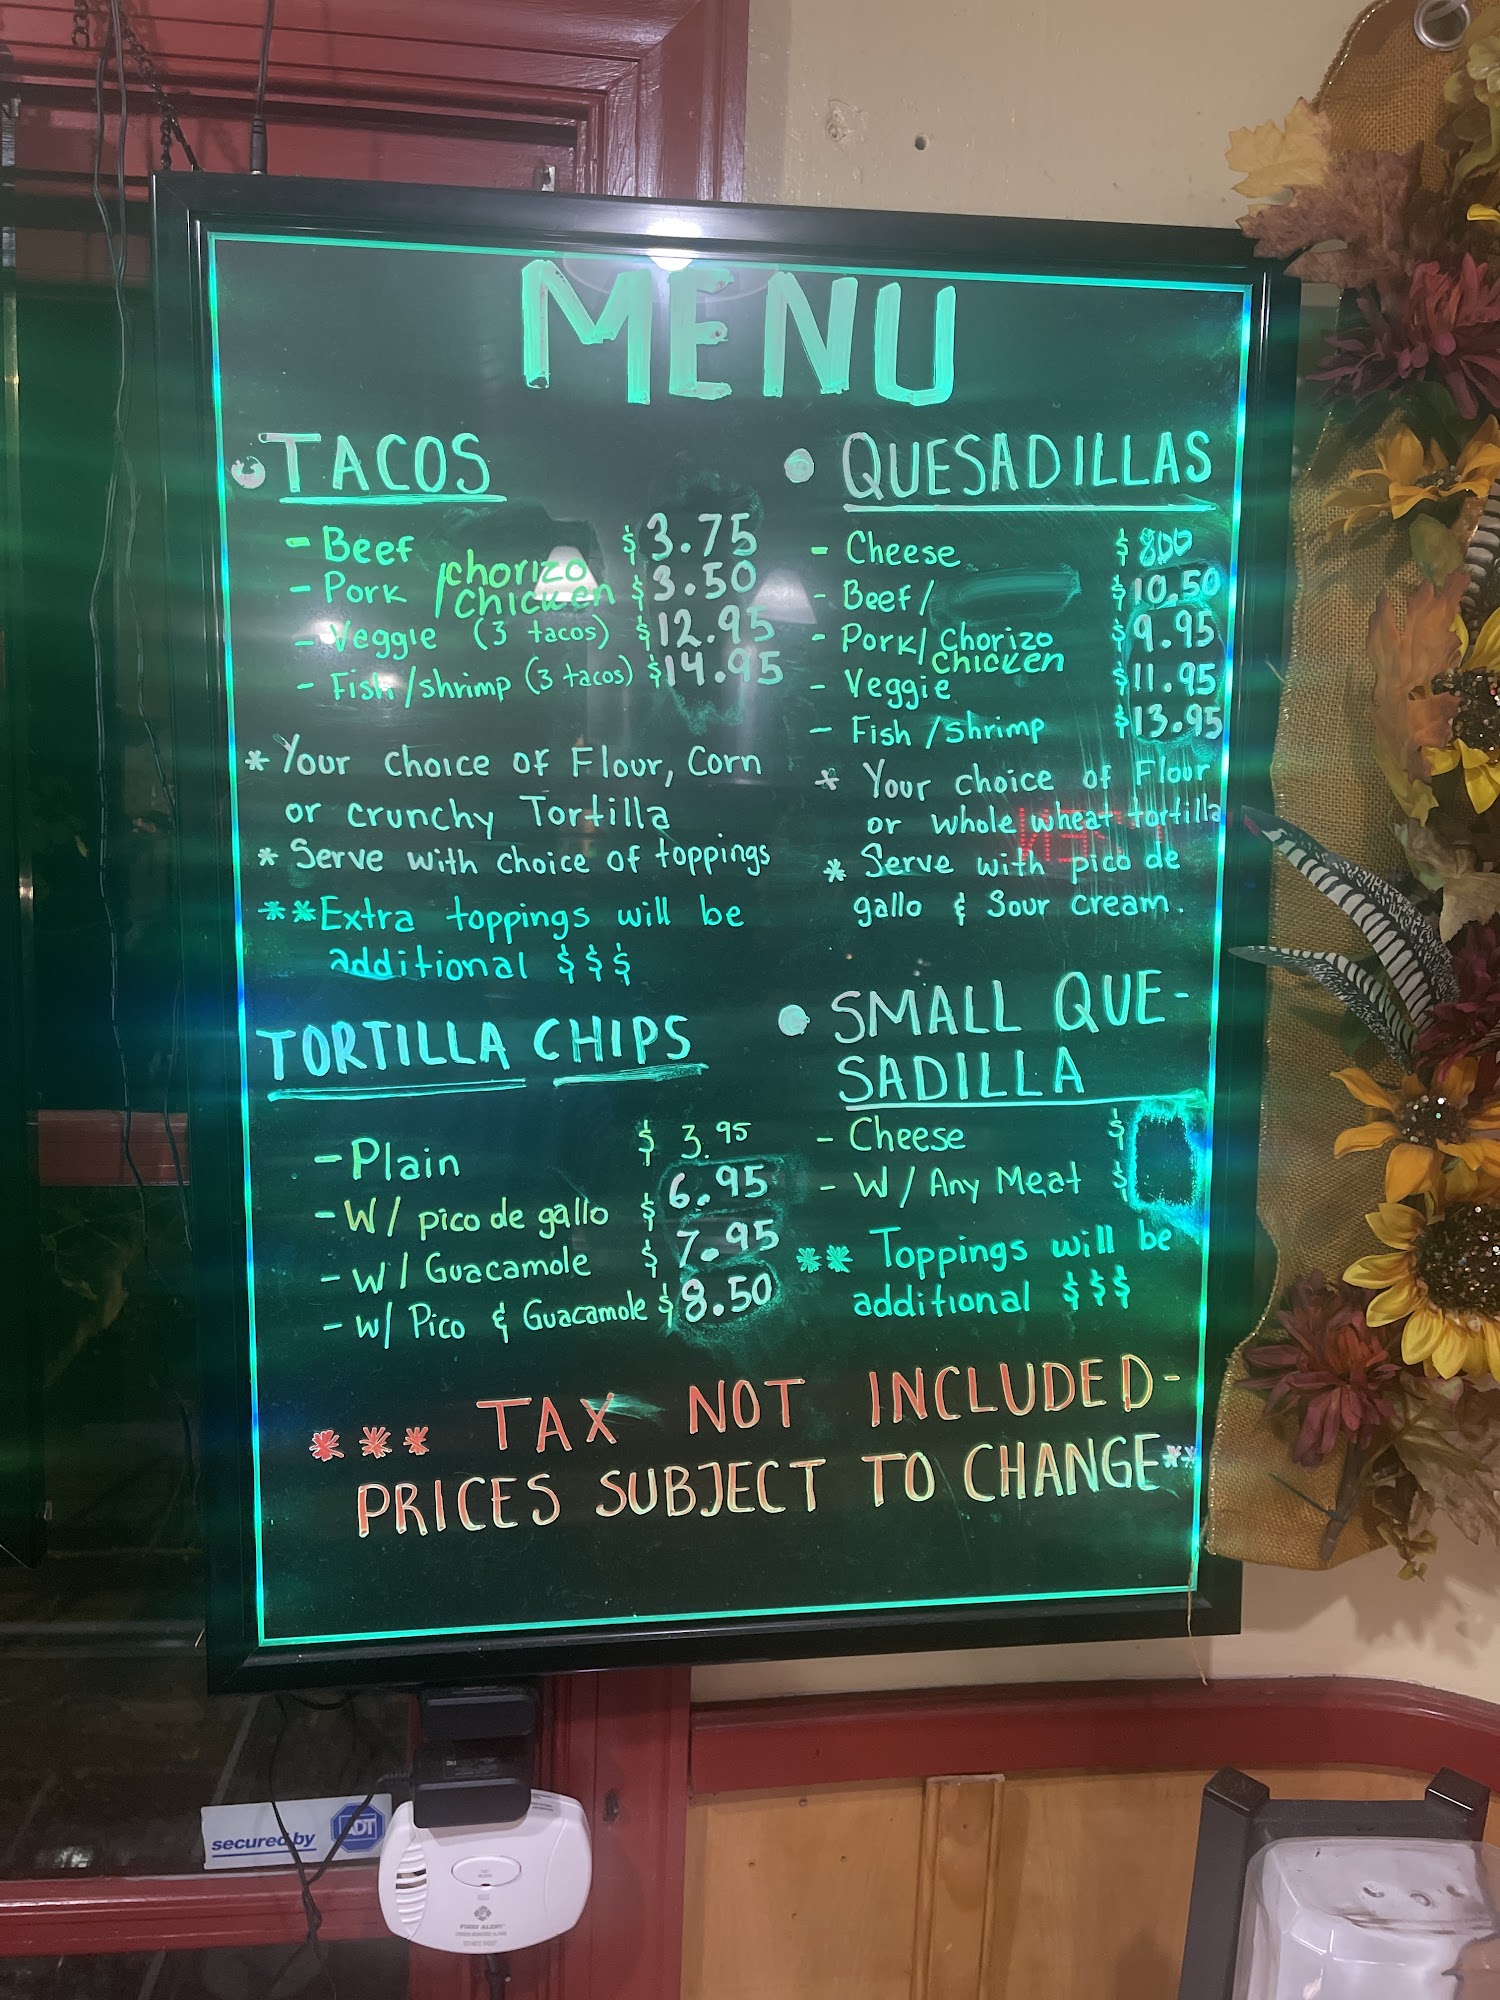 MENU
• TACOS
- Beef $3.75
- Pork /chorizo $3.50
/chicken
- Veggie (3 tacos) $12.95
- Fish/shrimp (3 tacos) $14.95
* Your choice of Flour, Corn
or crunchy Tortilla
* Serve with choice of toppings
**Extra toppings will be
additional $$$
TORTILLA CHIPS
- Plain $ 3.95
- W/ pico de gallo $ 6.95
- W/ Guacamole $ 7.95
- W/ Pico & Guacamole $8.50
• QUESADILLAS
- Cheese $ 800
- Beef/ $10.50
- Pork/ Chorizo $9.95
chicken
- Veggie $11.95
- Fish /shrimp $13.95
* Your choice of Flour
or whole wheat tortilla
* Serve with pico de
gallo & Sour cream.
• SMALL QUE-
SADILLA
- Cheese $
- W/ Any Meat $
** Toppings will be
additional $$$
*** TAX NOT INCLUDED-
PRICES SUBJECT TO CHANGE**
secured by ADT
FIRST ALERT